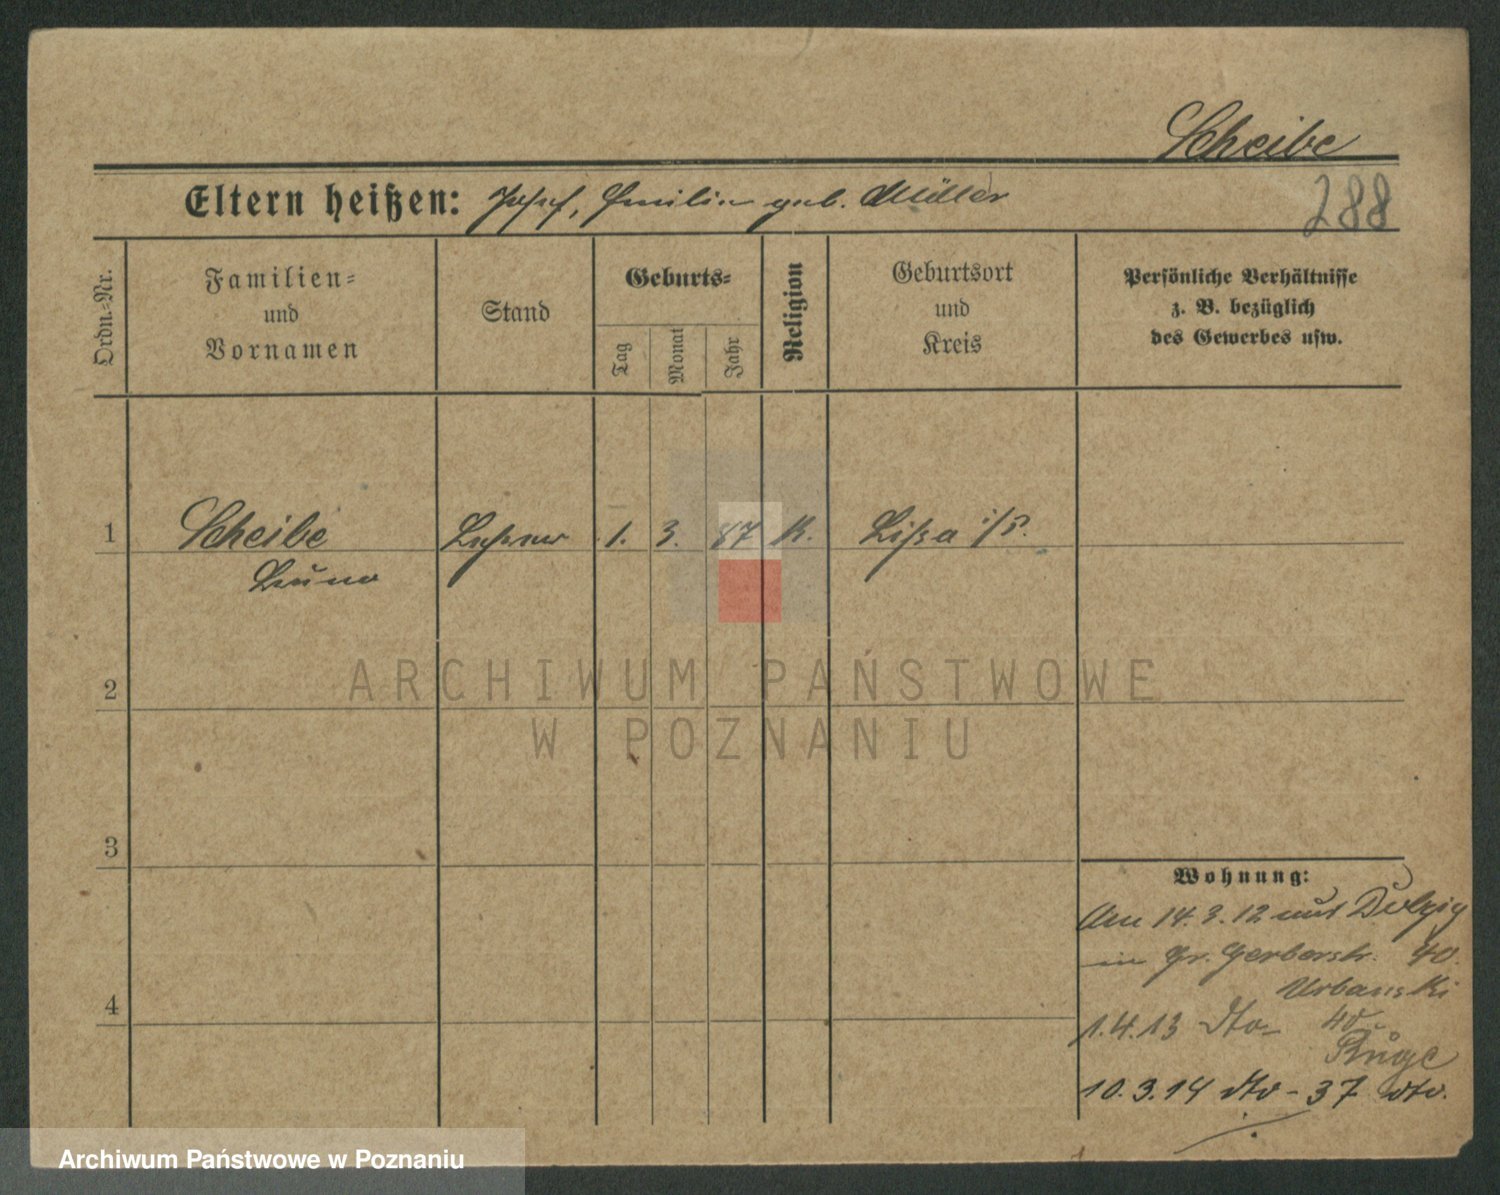 Scheibe
Eltern heißen: Josef, Emilie geb. Müller
288
Ordn.-Nr.
Familien=
und
Vornamen
Stand
Geburts=
Tag
Monat
Jahr
Religion
Geburtsort
und
Kreis
Persönliche Verhältnisse
z. B. bezüglich
des Gewerbes usw.
1 Scheibe Lehrer 1. 3. 87 K. Lissa i/P.
Bruno
2
3
4
Wohnung:
Am 14.3.12 aus Dolzig
in Gr. Gerberstr. 40.
Urbanski
1.4.13 dto- 40-
Ruge
10.3.14 dto - 37 dto.
ARCHIWUM PAŃSTWOWE
W POZNANIU
Archiwum Państwowe w Poznaniu